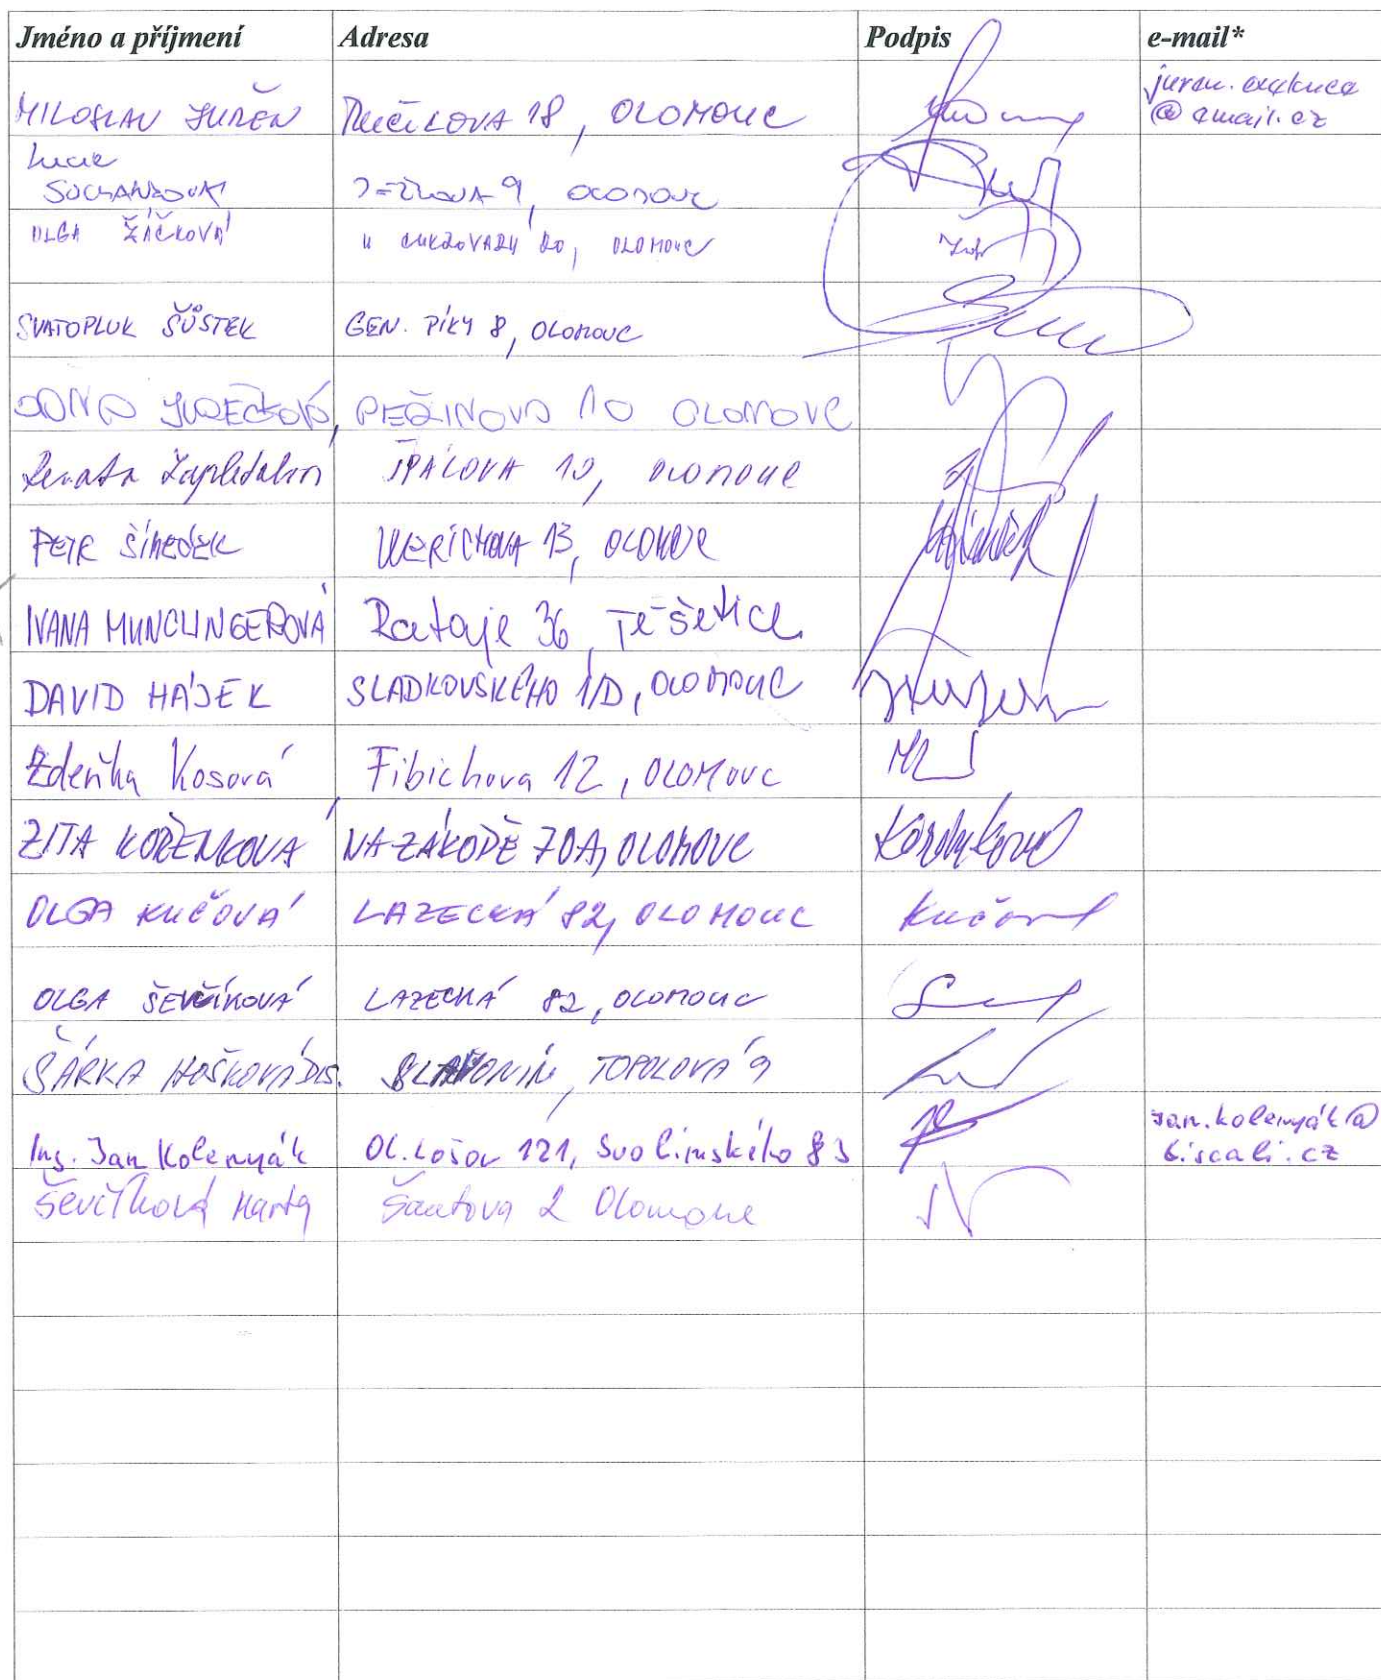 Jméno a příjmení Adresa Podpis e-mail*
MILOSLAV JUREN 18, OLOMOUC
@email.cz
Lucie
9, OLOMOUC
OLGA ŽÁČKOVÁ U CUKROVARU 20, OLOMOUC
SVATOPLUK ŠŮSTEK GEN. PÍKY 8, OLOMOUC
PEŠINOVA 10 OLOMOUC
Renata ŠPÁLOVA 10, OLOMOUC
PETR ŠIMEČEK WERICHOVA 13, OLOMOUC
IVANA MUNCLINGEROVÁ Rataje 36, Těšetice
DAVID HÁJEK SLADKOVSKÉHO 1/D, OLOMOUC
Zdeňka Kosová Fibichova 12, OLOMOUC
ZITA KOŘENKOVÁ NA ZÁKOPĚ 70A, OLOMOUC
OLGA KUČOVÁ LAZECKÁ 82, OLOMOUC Kučová
OLGA ŠEVČÍKOVÁ LAZECKÁ 82, OLOMOUC
ŠÁRKA HOŠKOVÁ DIS. SLAVONÍN, TOPOLOVÁ 9
Ing. Jan Kolenyák Ol. Lošov 121, Svolinského 83 jan.kolenyák@
tiscali.cz
Ševčíková Marta Šantova 2 Olomouc